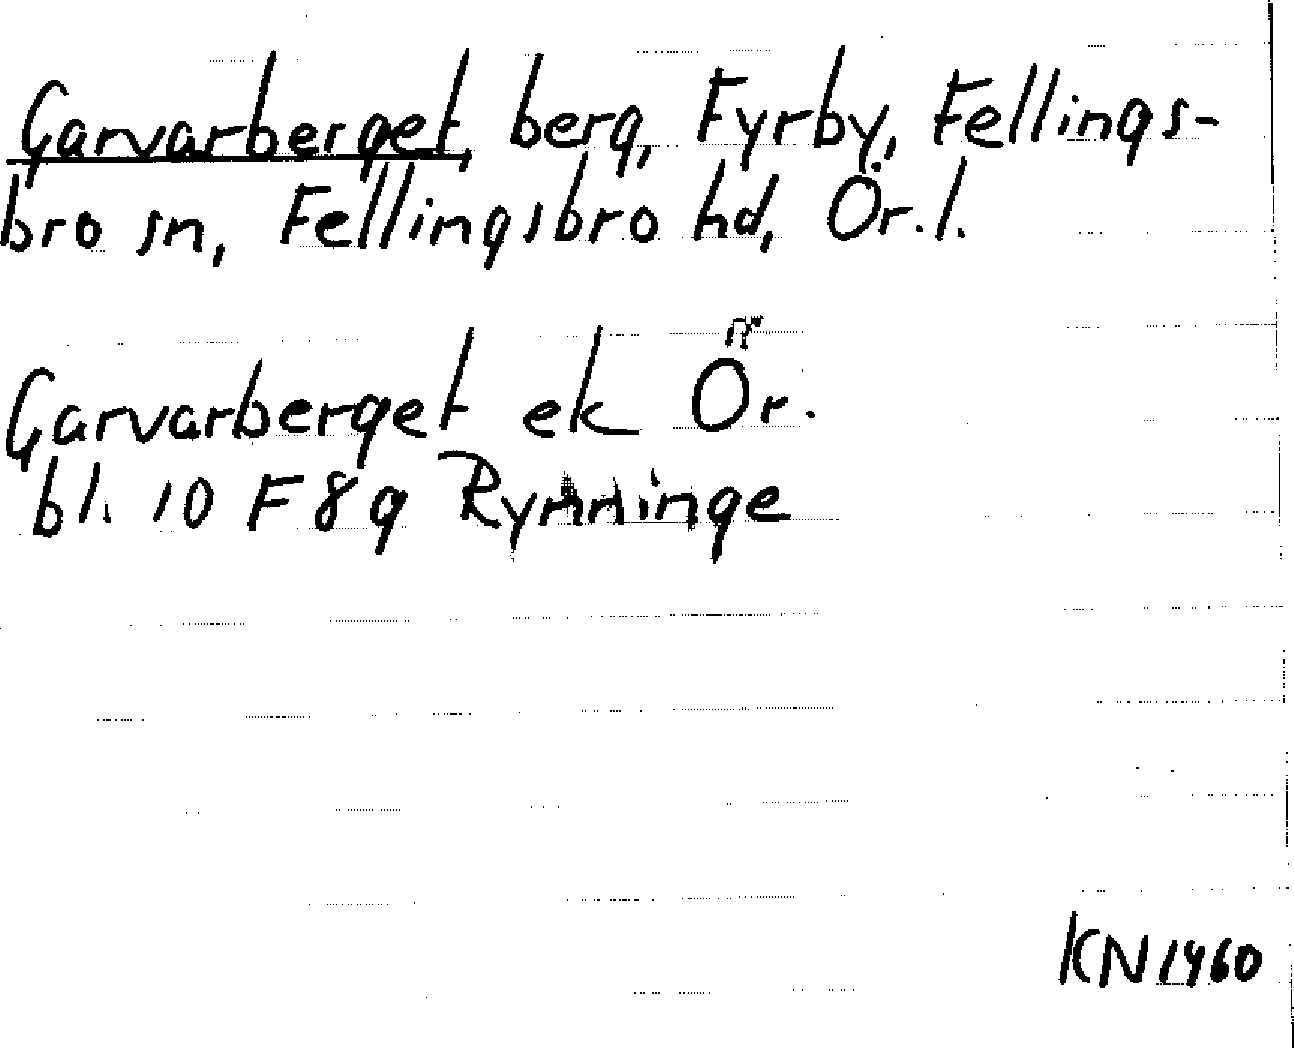 Garvarberget, berg, Fyrby, Fellings-
bro sn, Fellingsbro hd, Ör.l.
Garvarberget ek Ör.
bl. 10 F 8 g Rynninge
KN 1960